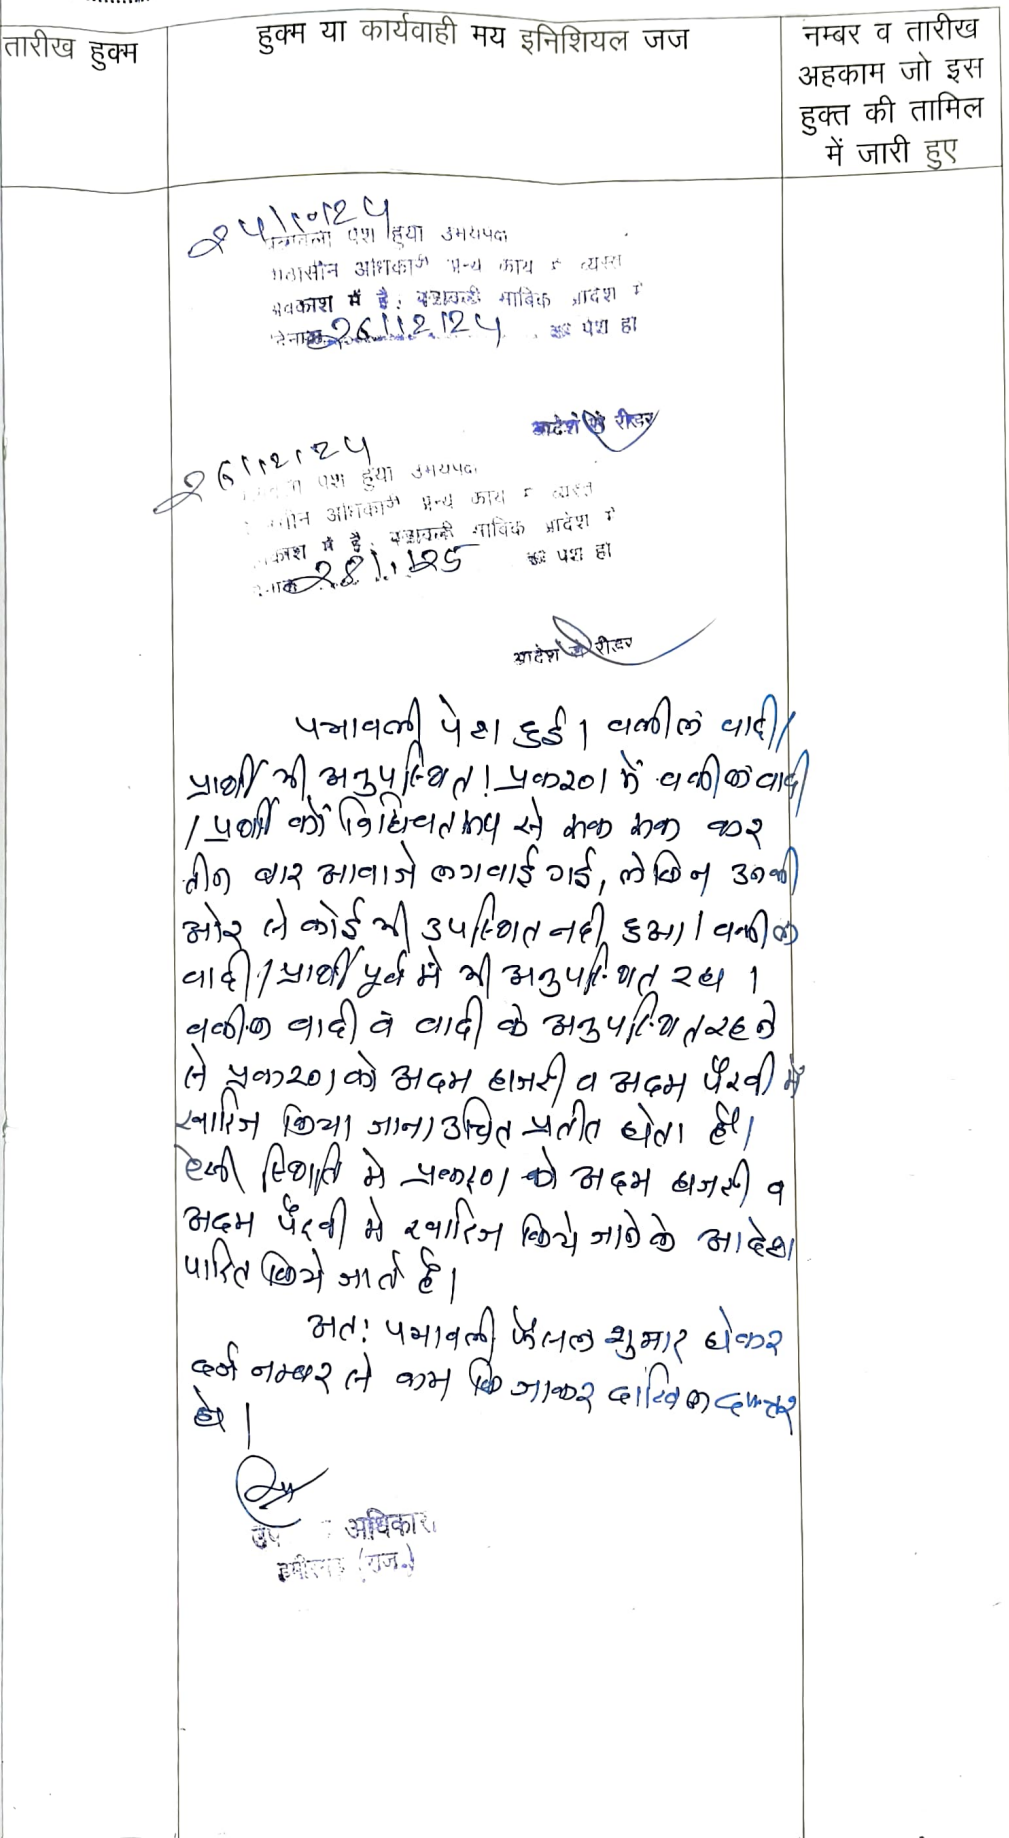 तारीख हुक्म
हुक्म या कार्यवाही मय इनिशियल जज
नम्बर व तारीख
अहकाम जो इस
हुक्त की तामिल
में जारी हुए
24/10/24
पेश हुया उभयपक्ष
अधिकारी अन्य कार्य में व्यस्त
अवकाश में है. पत्रावली साबिक आदेश में
26/12/24 को पेश हो
आदेश से रीडर
26/12/24
पेश हुया उभयपक्ष
अधिकारी अन्य कार्य में व्यस्त
में है. पत्रावली साबिक आदेश में
28/1/25 को पेश हो
आदेश से रीडर
पत्रावली पेश हुई। वकील वादी/
प्रार्थी भी अनुपस्थित। प्रकरण में वकील वादी
/ प्रार्थी को विधिवत रूप से रूक रूक कर
तीन बार आवाजे लगवाई गई, लेकिन उनकी
ओर से कोई भी उपस्थित नही हुआ। वकील
वादी/प्रार्थी पूर्व में भी अनुपस्थित रहा।
वकील वादी व वादी के अनुपस्थित रहने
से प्रकरण को अदम हाजरी व अदम पैरवी में
खारिज किया जाना उचित प्रतीत होता है।
ऐसी स्थिति मे प्रकरण को अदम हाजरी व
अदम पैरवी मे खारिज किये जाने के आदेश
पारित किये जाते है।
अत: पत्रावली फैसल शुमार होकर
दर्ज नम्बर से कम कि जाकर दाखिल दफ्तर
हो।
उप अधिकारी
हमीरगढ़ (राज.)